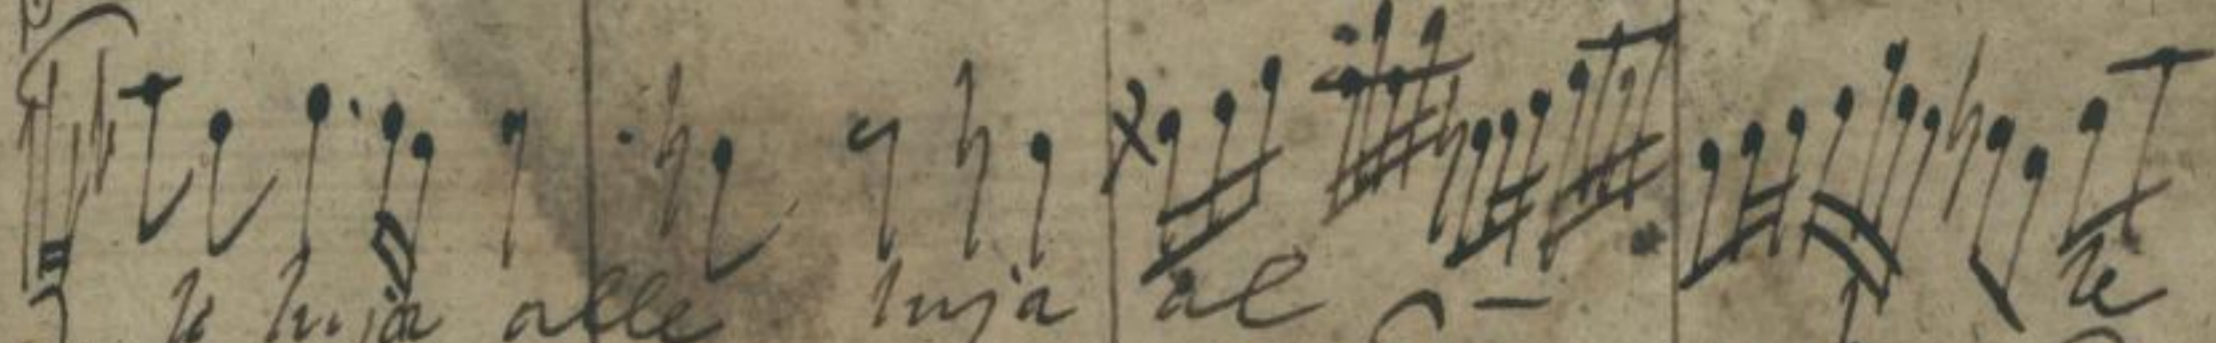 le luja alle luja al - le